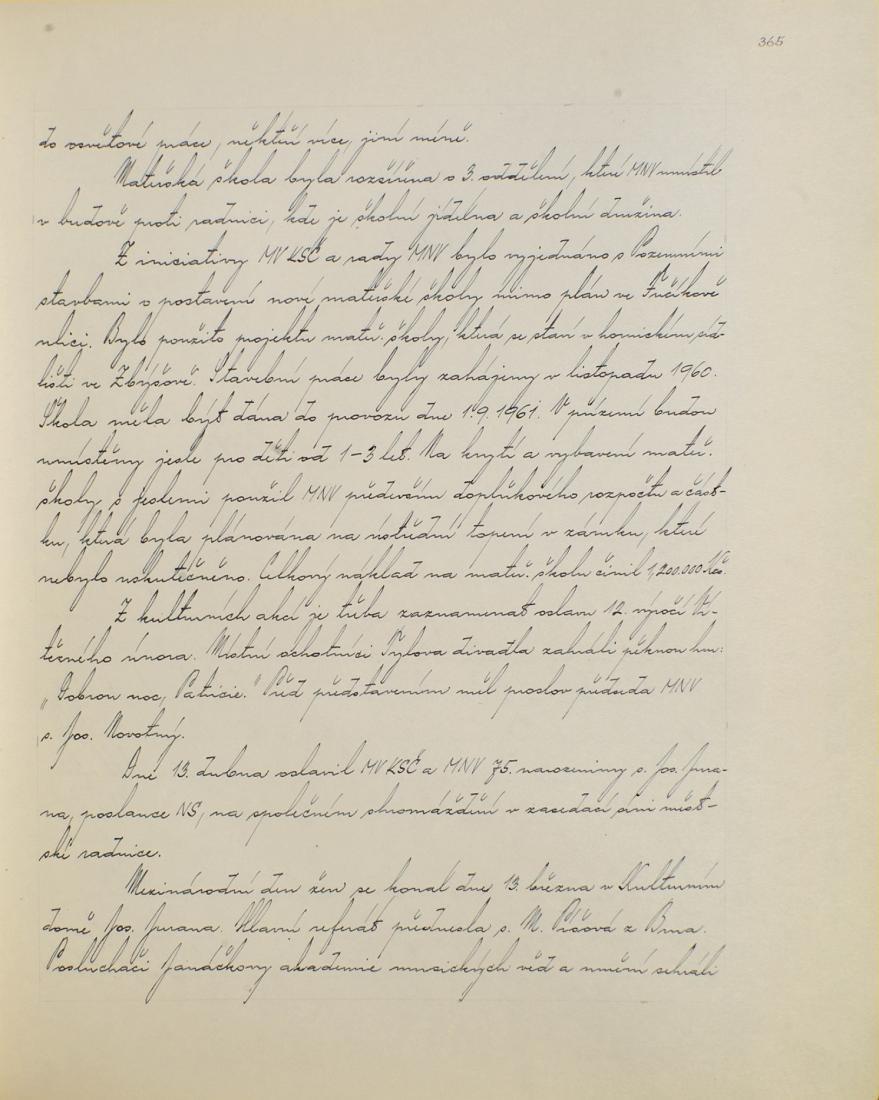 365
do osvětové práce, někteří více, jiní méně.
Mateřská škola byla rozšířena o 3. oddělení, které MNV umístil
v budově proti radnici, kde je školní jídelna a školní družina.
Z iniciativy MV KSČ a rady MNV bylo vyjednáno s Pozemními
stavbami o postavení nové mateřské školy mimo plán ve Fučíkově
ulici. Bylo použito projektu mateř. školy, která se staví v hornickém síd-
lišti ve Zbýšově. Stavební práce byly zahájeny v listopadu 1960.
Škola měla být dána do provozu dne 1.9.1961. V přízemí budou
umístěny jesle pro děti od 1-3 let. Na krytí a vybavení mateř.
školy s jeslemi použil MNV především doplňkového rozpočtu a část-
ku, která byla plánována na ústřední topení v zámku, které
nebylo uskutečněno. Celkový náklad na mateř. školu činil 1,200.000 Kčs.
Z kulturních akcí je třeba zaznamenat oslavu 12. výročí Ví-
tězného února. Místní ochotníci Tylova divadla zahráli pěknou hru:
„Dobrou noc, Patricie." Před představením měl proslov předseda MNV
s. Jos. Novotný.
Dne 13. dubna oslavil MV KSČ a MNV 75. narozeniny s. Jos. Jura-
na, poslance NS, na společném shromáždění v zasedací síni měst-
ské radnice.
Mezinárodní den žen se konal dne 13. března v Kulturním
domě Jos. Jurana. Hlavní referát přednesla s. M. Píšová z Brna.
Posluchači Janáčkovy akademie musických věd a umění sehráli